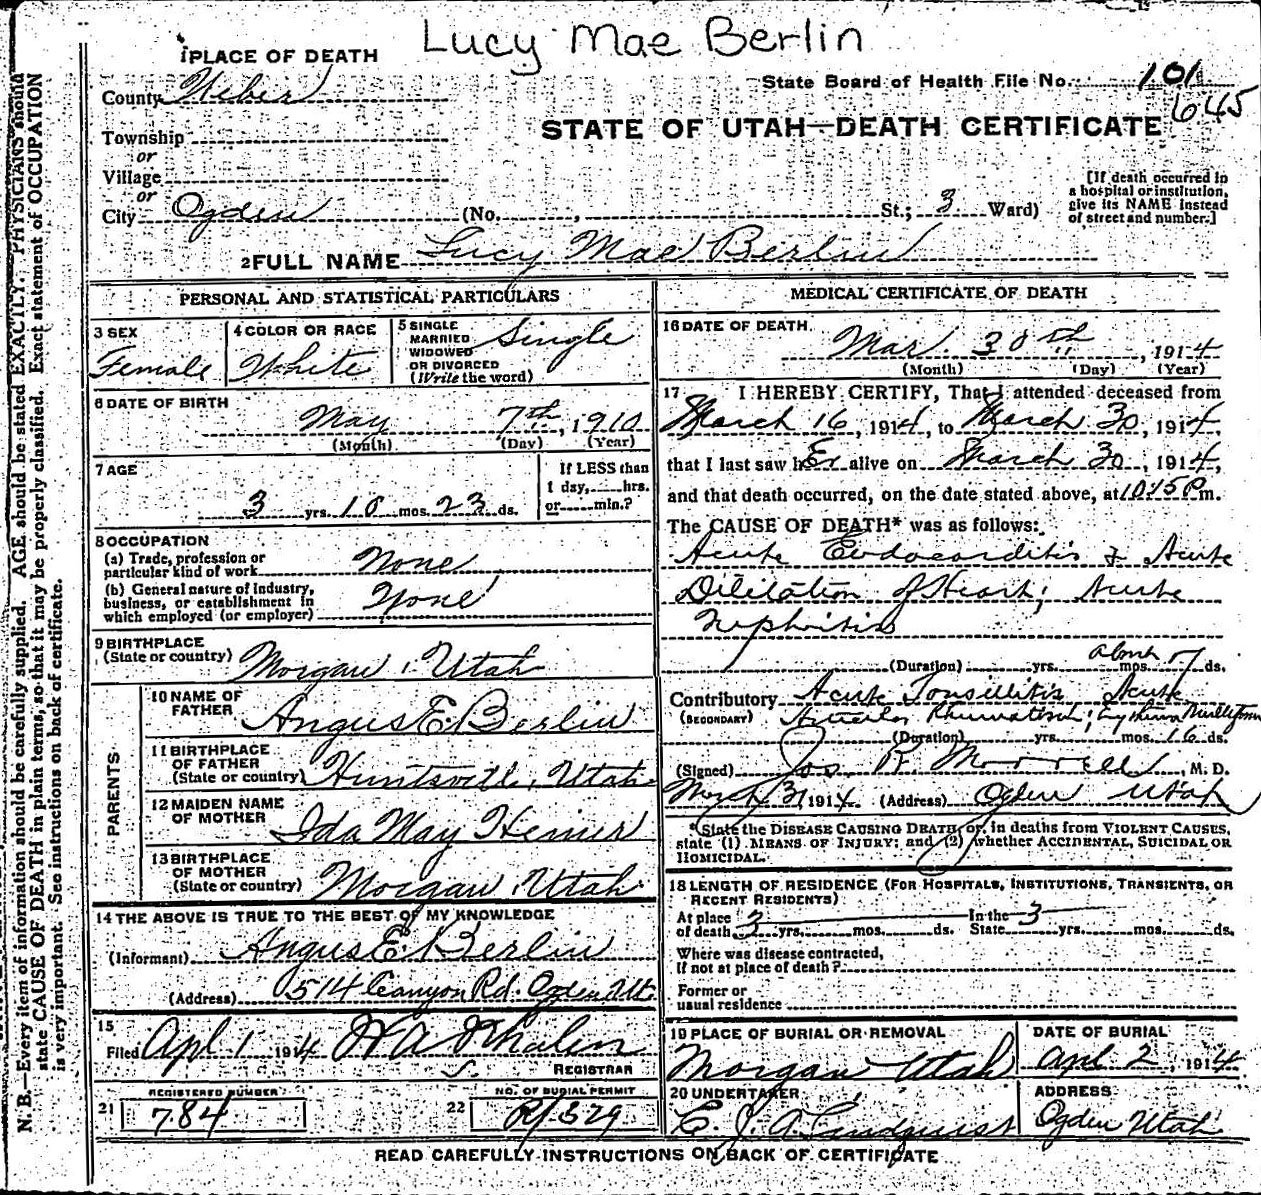 Lucy Mae Berlin
1 PLACE OF DEATH
County Weber
State Board of Health File No. 101
645
STATE OF UTAH—DEATH CERTIFICATE
Township
or
Village
or
City Ogden (No. , St.; 3 Ward)
[If death occurred in
a hospital or institution,
give its NAME instead
of street and number.]
2 FULL NAME Lucy Mae Berlin
PERSONAL AND STATISTICAL PARTICULARS
3 SEX
Female
4 COLOR OR RACE
White
5 SINGLE
MARRIED
WIDOWED
OR DIVORCED
(Write the word)
Single
6 DATE OF BIRTH
May 7th, 1910
(Month) (Day) (Year)
7 AGE
3 yrs. 10 mos. 23 ds.
If LESS than
1 day, hrs.
or min.?
8 OCCUPATION
(a) Trade, profession or
particular kind of work None
(b) General nature of industry,
business, or establishment in
which employed (or employer) None
9 BIRTHPLACE
(State or country) Morgan, Utah
PARENTS
10 NAME OF
FATHER Angus E. Berlin
11 BIRTHPLACE
OF FATHER
(State or country) Huntsville, Utah
12 MAIDEN NAME
OF MOTHER Ida May Heiner
13 BIRTHPLACE
OF MOTHER
(State or country) Morgan, Utah
14 THE ABOVE IS TRUE TO THE BEST OF MY KNOWLEDGE
(Informant) Angus E. Berlin
(Address) 514 Canyon Rd. Ogden Ut.
15
Filed Apl 1 1914
REGISTRAR
REGISTERED NUMBER
21 784
NO. OF BURIAL PERMIT
22 R/329
MEDICAL CERTIFICATE OF DEATH
16 DATE OF DEATH
Mar. 30th, 1914
(Month) (Day) (Year)
17 I HEREBY CERTIFY, That I attended deceased from
March 16, 1914, to March 30, 1914,
that I last saw hEr alive on March 30, 1914,
and that death occurred, on the date stated above, at 10:15 P m.
The CAUSE OF DEATH* was as follows:
Acute Endocarditis & Acute
Dilitation of Heart; Acute
Nephritis
(Duration) yrs. about mos. 7 ds.
Contributory Acute Tonsillitis Acute
(SECONDARY) Rheumatism;
(Duration) yrs. mos. 16 ds.
(Signed) Jos. R. Morrell, M. D.
March 31 1914 (Address) Ogden Utah
*State the DISEASE CAUSING DEATH, or, in deaths from VIOLENT CAUSES,
state (1) MEANS OF INJURY; and (2) whether ACCIDENTAL, SUICIDAL OR
HOMICIDAL.
18 LENGTH OF RESIDENCE (FOR HOSPITALS, INSTITUTIONS, TRANSIENTS, OR
RECENT RESIDENTS)
At place
of death 3 yrs. mos. ds.
In the
State 3 yrs. mos. ds.
Where was disease contracted,
if not at place of death?
Former or
usual residence
19 PLACE OF BURIAL OR REMOVAL
Morgan Utah
DATE OF BURIAL
Apl 2, 1914
20 UNDERTAKER
C. J. A. Lindquist
ADDRESS
Ogden Utah
READ CAREFULLY INSTRUCTIONS ON BACK OF CERTIFICATE
N. B.—Every item of information should be carefully supplied. AGE should be stated EXACTLY. PHYSICIANS should
state CAUSE OF DEATH in plain terms, so that it may be properly classified. Exact statement of OCCUPATION
is very important. See instructions on back of certificate.